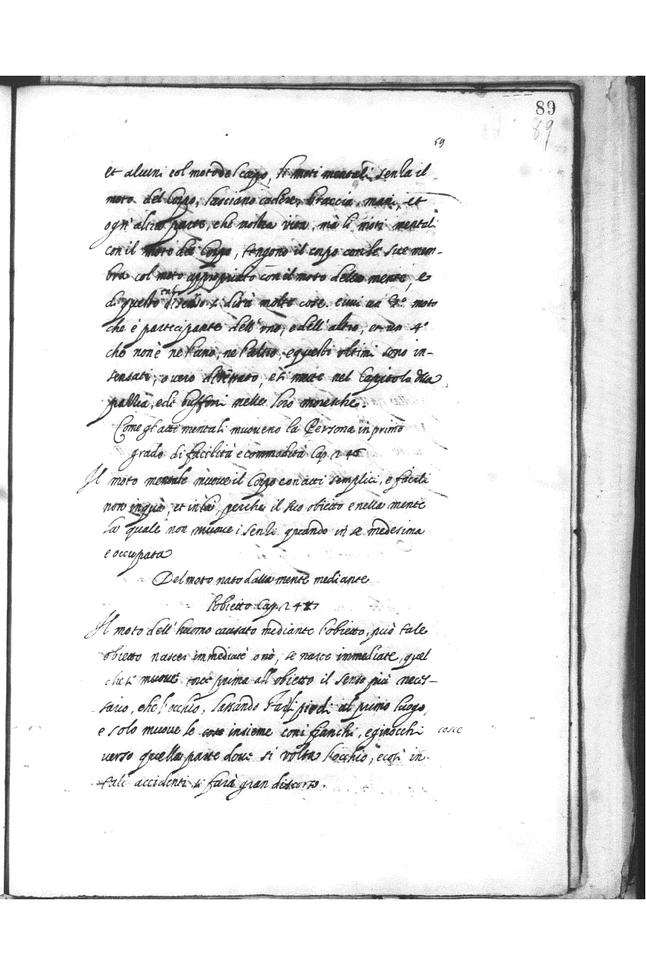 89
89
59
et alcuni col moto del corpo, li moti mentali senza il
moto del corpo, lasciano cadere, braccia, mani, et
ogn'altra parte, che mostra vita, mà li moti mentali
con il moto del corpo, tengono il corpo con le sue mem-
bra col moto appropriato con il moto della mente, e
di questo tal discorso si dirà molte cose. eiui un 3º. moto
che è partecipante dell'uno, e dell'altro, et un 4º
che non è ne l'uno, ne l'altro, e questi ultimi sono in-
sensati, o vero et si mette nel Capitolo della
pazzia, e di buffoni nelle loro moresche.
Come gl'atti mentali muoueno la Persona in primo
grado di facilità e commodità Cap. 246
Il moto mentale muoue il Corpo con atti semplici, e facili
non in quà, et in là, perche il suo obietto e nella mente
la quale non muoue i sensi quando in se medesima
e occupata
Del moto nato dalla mente mediante
l'obietto Cap. 247
Il moto dell'huomo causato mediante l'obietto, può tale
obietto nascer immediate o nò, se nasce immediate, quel
che si muoue torce prima all'obietto il senso più neces-
sario, che l'occhio, lassando li piedi al primo luogo,
e solo muoue le coste insieme con i fianchi, e ginocchi cosce
verso quella parte doue si volta l'occhio, e così in
tali accidenti si farà gran discorso.